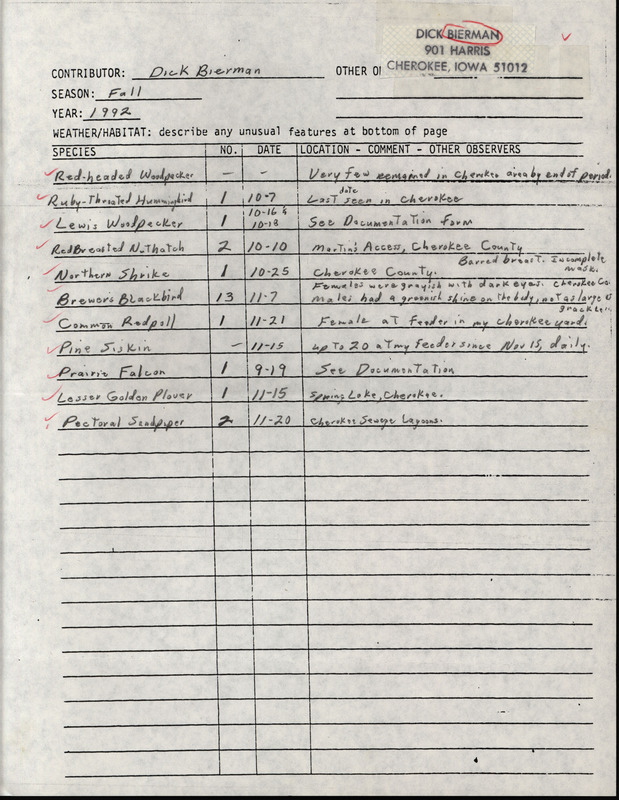 DICK BIERMAN
901 HARRIS
CHEROKEE, IOWA 51012
CONTRIBUTOR: Dick Bierman OTHER
SEASON: Fall
YEAR: 1992
WEATHER/HABITAT: describe any unusual features at bottom of page
SPECIES NO. DATE LOCATION - COMMENT - OTHER OBSERVERS
Red-headed Woodpecker - - Very few remained in Cherokee area by end of period.
Ruby-Throated Hummingbird 1 10-7 Last date seen in Cherokee
Lewis Woodpecker 1 10-16 & 10-18 See Documentation form
Red Breasted Nuthatch 2 10-10 Martin's Access, Cherokee County
Northern Shrike 1 10-25 Cherokee County. Barred breast. Incomplete mask.
Brewers Blackbird 13 11-7 Females were grayish with dark eyes. Cherokee Co. Males had a greenish shine on the body, not as large as grackles.
Common Redpoll 1 11-21 Female at feeder in my Cherokee yard.
Pine Siskin - 11-15 up to 20 at my feeder since Nov 15, daily.
Prairie Falcon 1 9-19 See Documentation
Lesser Golden Plover 1 11-15 Spring Lake, Cherokee.
Pectoral Sandpiper 2 11-20 Cherokee Sewage Lagoons.